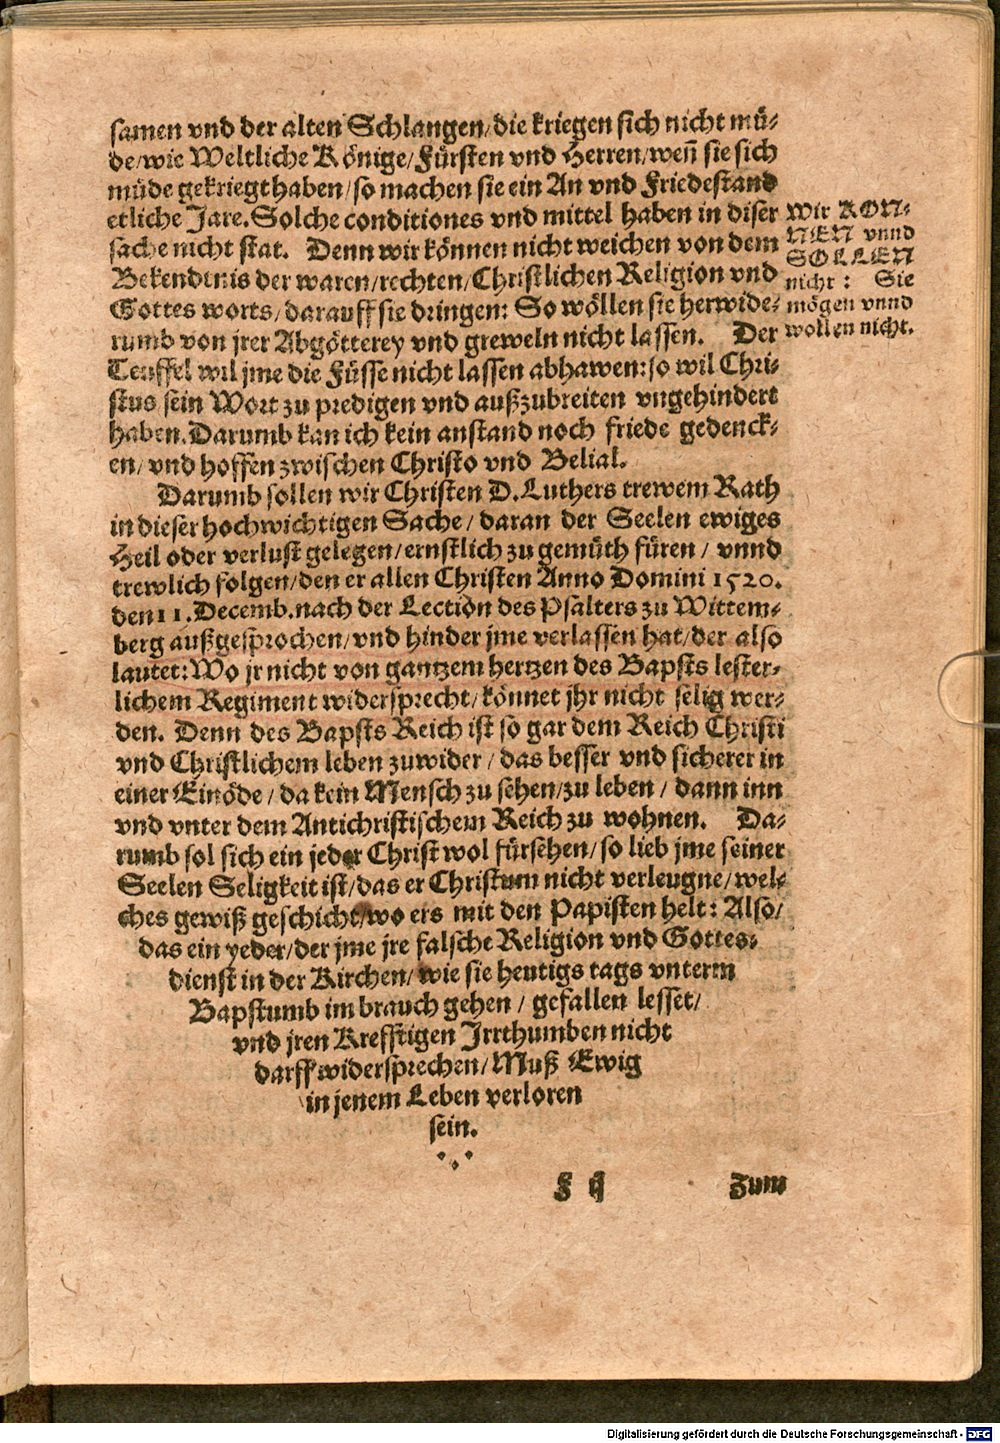 samen vnd der alten Schlangen/die kriegen sich nicht mü-
de/wie Weltliche Könige/Fürsten vnd Herren/weñ sie sich
müde gekriegt haben/so machen sie ein An vnd Friedestand
etliche Jare. Solche conditiones vnd mittel haben in diser
sache nicht stat. Denn wir können nicht weichen von dem
Bekendtnis der waren/rechten/Christlichen Religion vnd
Gottes worts/darauff sie dringen: So wöllen sie herwide-
rumb von jrer Abgötterey vnd greweln nicht lassen. Der
Teuffel wil jme die Füsse nicht lassen abhawen: so wil Chri-
stus sein Wort zu predigen vnd außzubreiten vngehindert
haben. Darumb kan ich kein anstand noch friede gedenck-
en/vnd hoffen zwischen Christo vnd Belial.
Wir KÖN-
NEN vnnd
SOLLEN
nicht: Sie
mögen vnnd
wollen nicht.
Darumb sollen wir Christen D. Luthers trewem Rath
in dieser hochwichtigen Sache/daran der Seelen ewiges
Heil oder verlust gelegen/ernstlich zu gemüth füren/vnnd
trewlich folgen/den er allen Christen Anno Domini 1520.
den 11. Decemb. nach der Lection des Psalters zu Wittem-
berg außgesprochen/vnd hinder jme verlassen hat/der also
lautet: Wo jr nicht von gantzem hertzen des Bapsts lester-
lichem Regiment widersprecht/könnet jhr nicht selig wer-
den. Denn des Bapsts Reich ist so gar dem Reich Christi
vnd Christlichem leben zuwider/das besser vnd sicherer in
einer Einöde/da kein Mensch zu sehen/zu leben/dann inn
vnd vnter dem Antichristischem Reich zu wohnen. Da-
rumb sol sich ein jeder Christ wol fürsehen/so lieb jme seiner
Seelen Seligkeit ist/das er Christum nicht verleugne/wel-
ches gewiß geschicht/wo ers mit den Papisten helt: Also/
das ein yeder/der jme jre falsche Religion vnd Gottes-
dienst in der Kirchen/wie sie heutigs tags vnterm
Bapstumb im brauch gehen/gefallen lesset/
vnd jren Krefftigen Irrthumben nicht
darff widersprechen/Muß Ewig
in jenem Leben verloren
sein.
F ij Zum
Digitalisierung gefördert durch die Deutsche Forschungsgemeinschaft - DFG